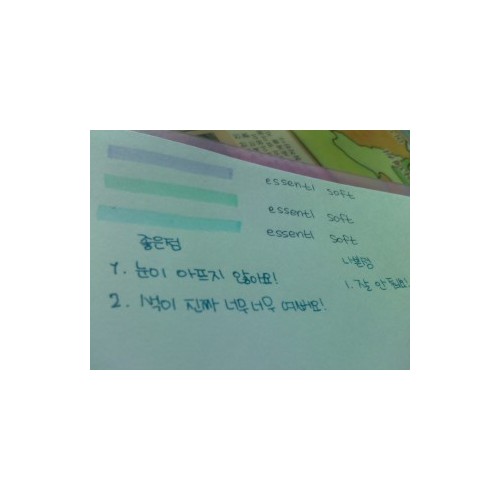 essentl soft
essentl soft
essentl soft
좋은점
1. 눈이 아프지 않아요!
2. 색이 진짜 너무너무 예뻐요!
나쁜점
1. 잘 안